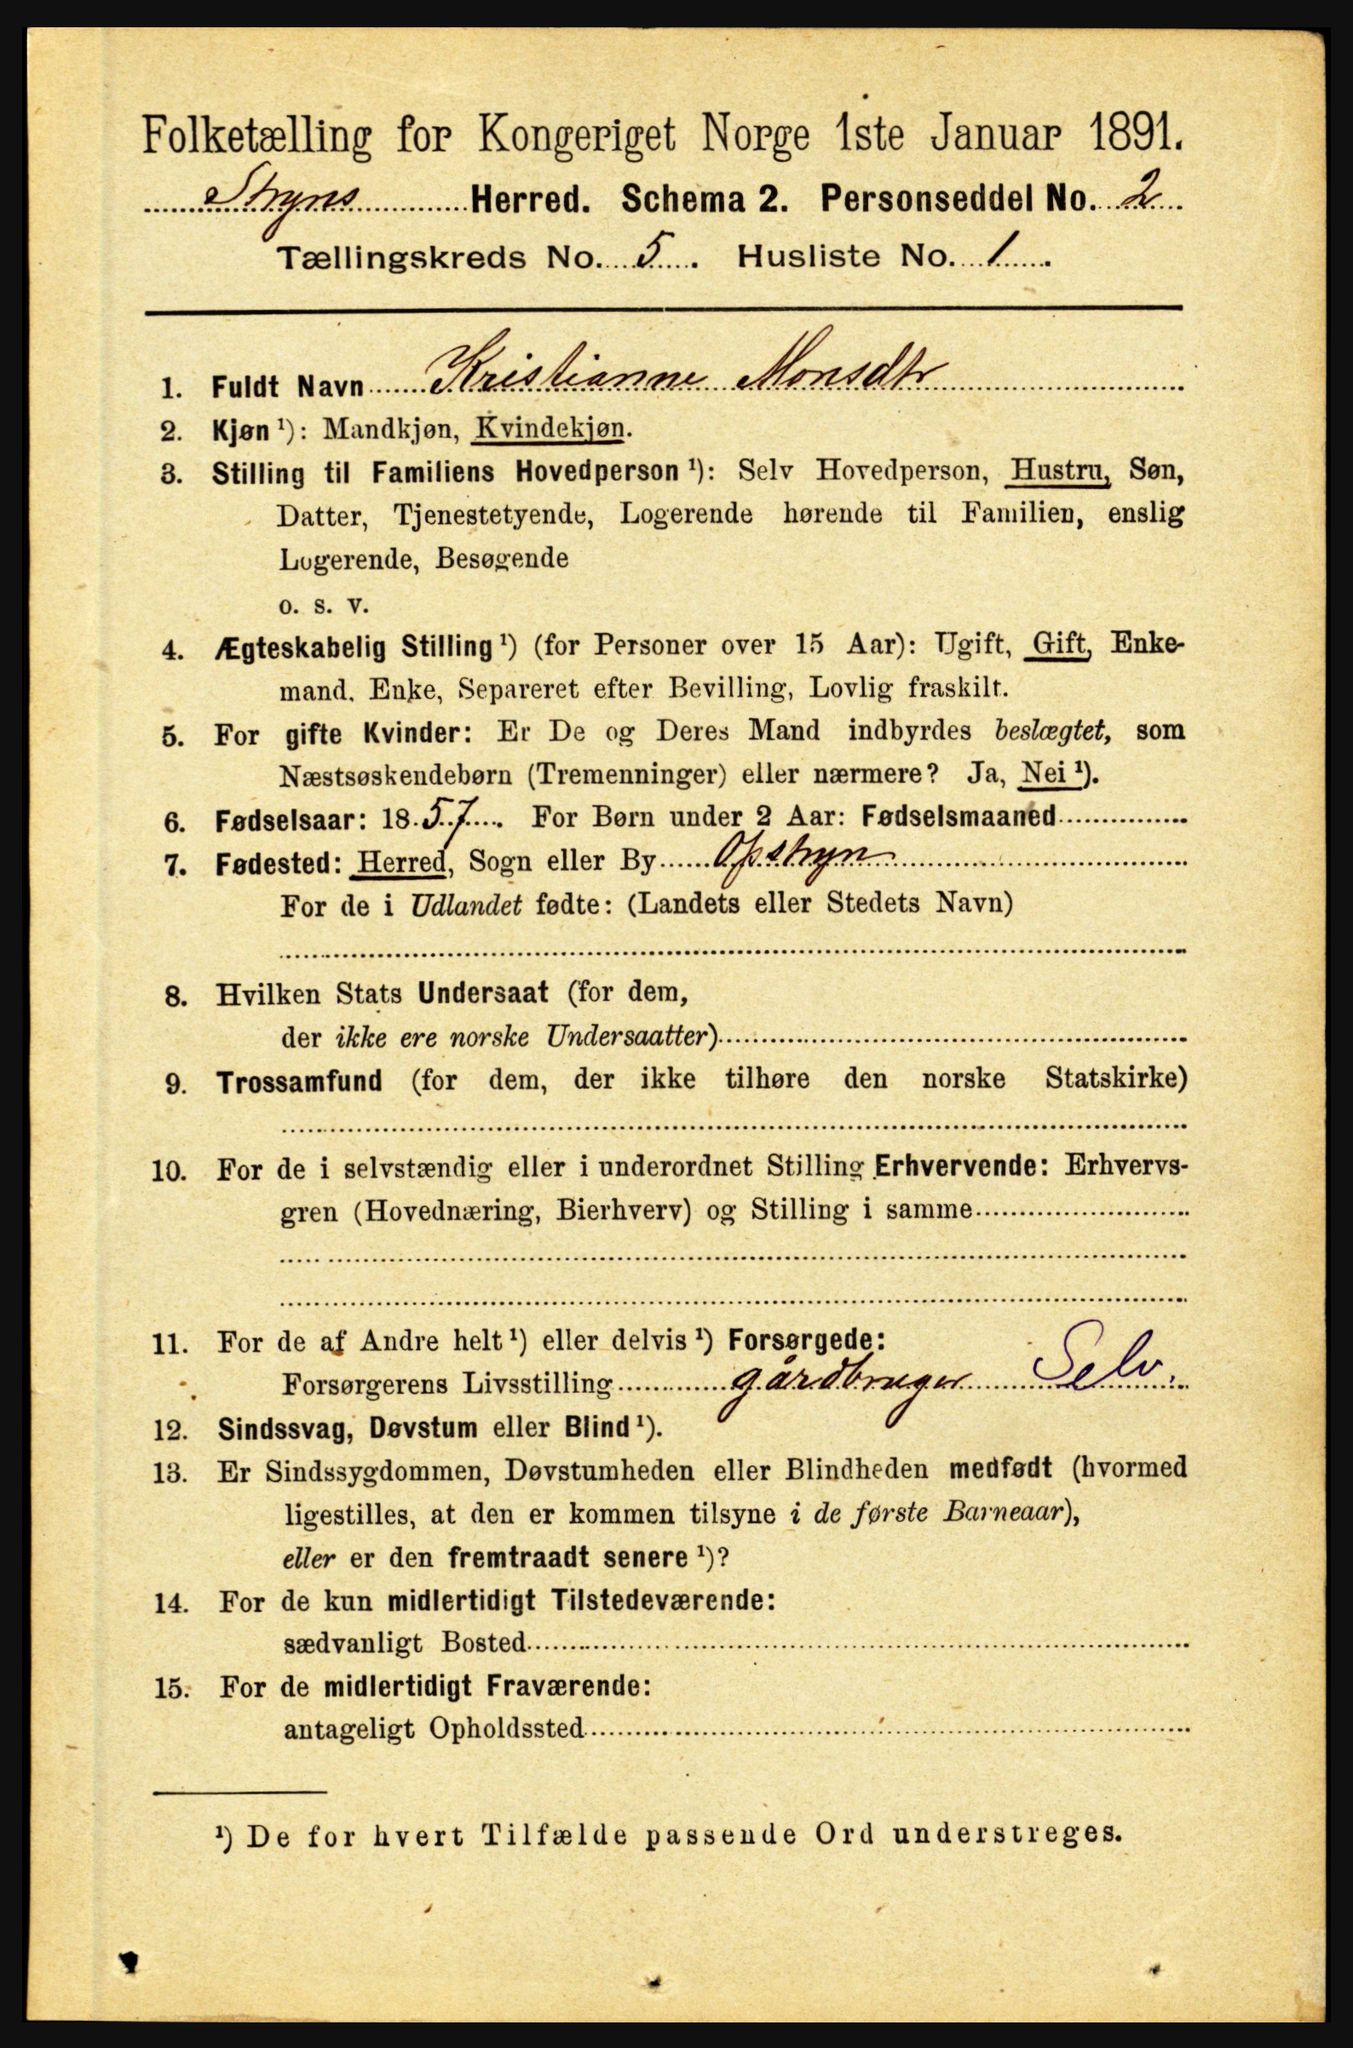 Folketælling for Kongeriget Norge 1ste Januar 1891.
Stryns Herred. Schema 2. Personseddel No. 2
Tællingskreds No. 5. Husliste No. 1.
1. Fuldt Navn Kristianne Monsdtr
2. Kjøn ¹): Mandkjøn, Kvindekjøn.
3. Stilling til Familiens Hovedperson ¹): Selv Hovedperson, Hustru, Søn,
Datter, Tjenestetyende, Logerende hørende til Familien, enslig
Logerende, Besøgende
o. s. v.
4. Ægteskabelig Stilling ¹) (for Personer over 15 Aar): Ugift, Gift, Enke-
mand, Enke, Separeret efter Bevilling, Lovlig fraskilt.
5. For gifte Kvinder: Er De og Deres Mand indbyrdes beslægtet, som
Næstsøskendebørn (Tremenninger) eller nærmere? Ja, Nei ¹).
6. Fødselsaar: 1857. For Børn under 2 Aar: Fødselsmaaned
7. Fødested: Herred, Sogn eller By Opstryn
For de i Udlandet fødte: (Landets eller Stedets Navn)
8. Hvilken Stats Undersaat (for dem,
der ikke ere norske Undersaatter)
9. Trossamfund (for dem, der ikke tilhøre den norske Statskirke)
10. For de i selvstændig eller i underordnet Stilling Erhvervende: Erhvervs-
gren (Hovednæring, Bierhverv) og Stilling i samme
11. For de af Andre helt ¹) eller delvis ¹) Forsørgede:
Forsørgerens Livsstilling gårdbruger Selv.
12. Sindssvag, Døvstum eller Blind ¹).
13. Er Sindssygdommen, Døvstumheden eller Blindheden medfødt (hvormed
ligestilles, at den er kommen tilsyne i de første Barneaar),
eller er den fremtraadt senere ¹)?
14. For de kun midlertidigt Tilstedeværende:
sædvanligt Bosted
15. For de midlertidigt Fraværende:
antageligt Opholdssted
¹) De for hvert Tilfælde passende Ord understreges.